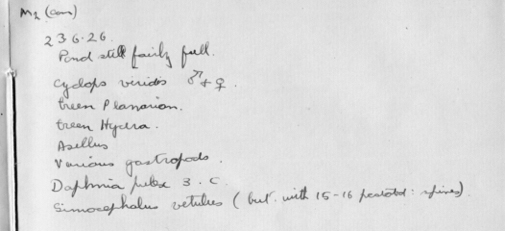 M2 (con)
23 6.26.
Pond still fairly full.
Cyclops viridis ♂ + ♀.
Green Planarian.
Green Hydra.
Asellus
Various gastropods.
Daphnia pulex 3. C.
Simocephalus vetulus (but. with 15-16 : spines).